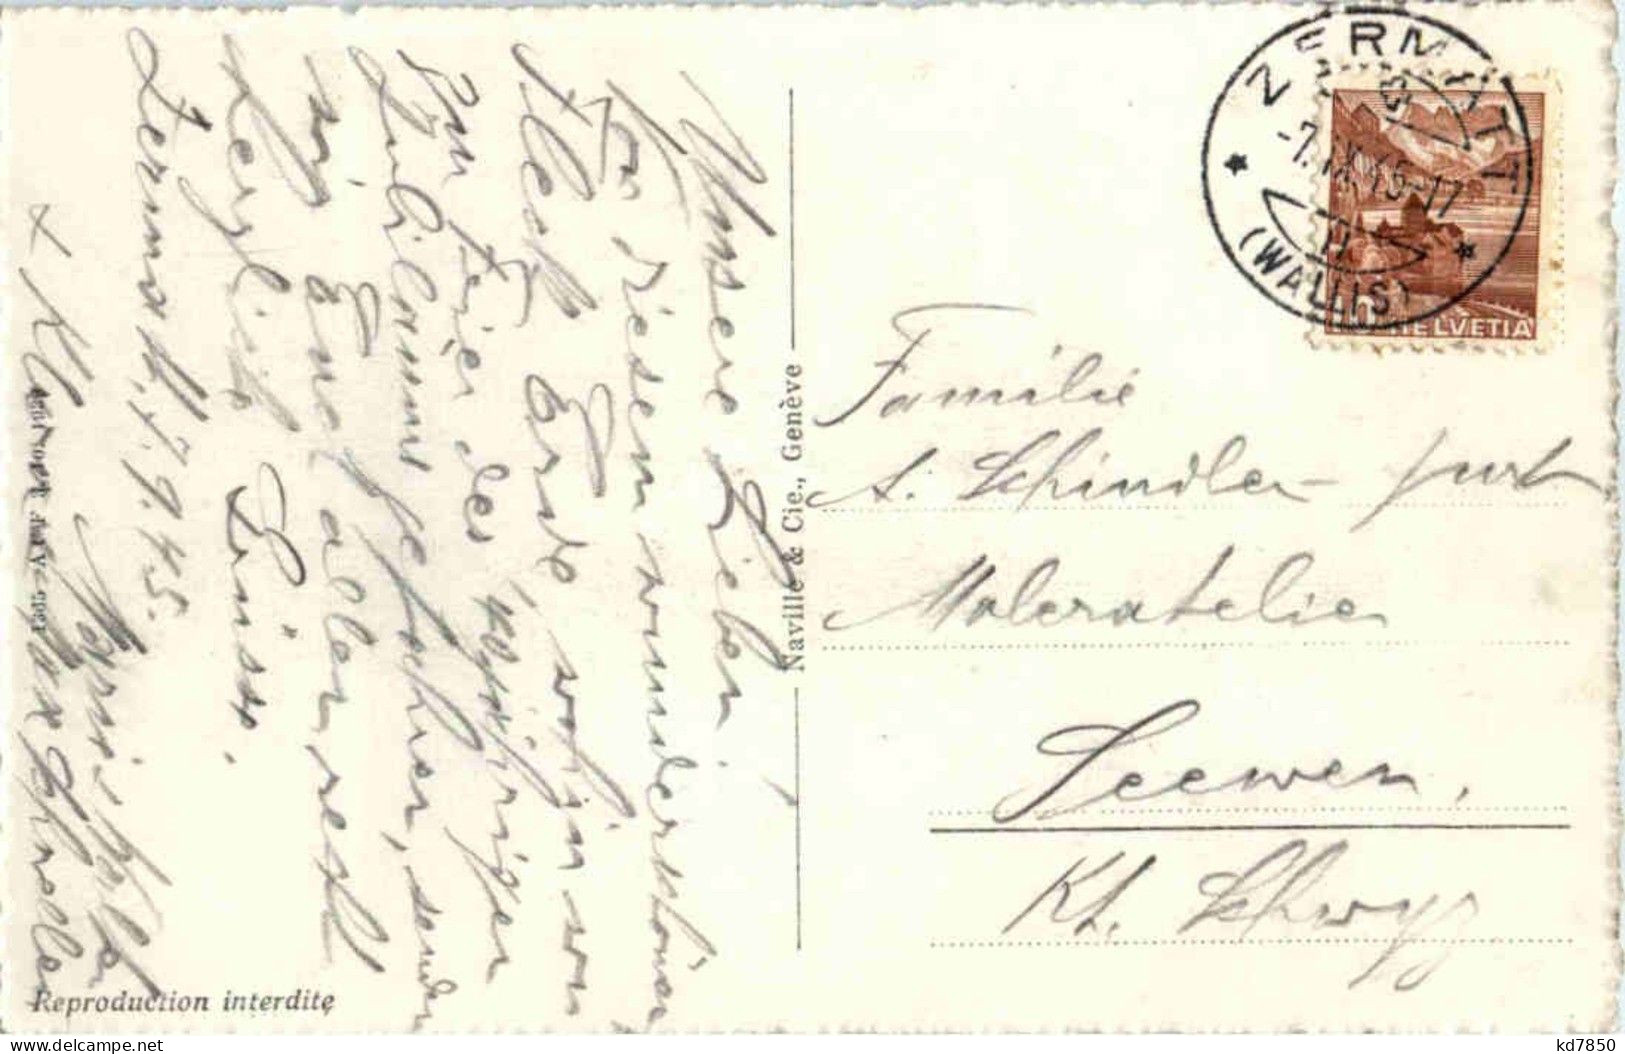 Unsere Lieben.
Von diesem wunderschönen
Fleck Erde, wohin wir
zur Feier des 40jährigen
Jubiläums gefahren, senden
wir Euch allen recht
herzliche
Grüsse.
Zermatt, 7.9.45.
Naville & Cie., Genève
Reproduction interdite
ZERMATT
-7.IX.45-17
(WALLIS)
HELVETIA
Familie
A. Schindler
Maleratelier
Seewen,
Kt. Schwyz
kd7850